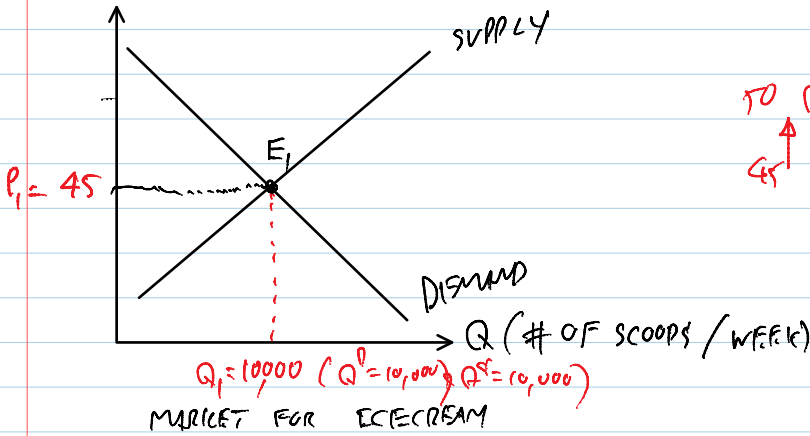 SUPPLY
50
E₁
45
P₁ = 45
DEMAND
Q (# OF SCOOPS / WEEK)
Q₁ = 10,000 (Qᴰ = 10,000, Qˢ = 10,000)
MARKET FOR ICECREAM